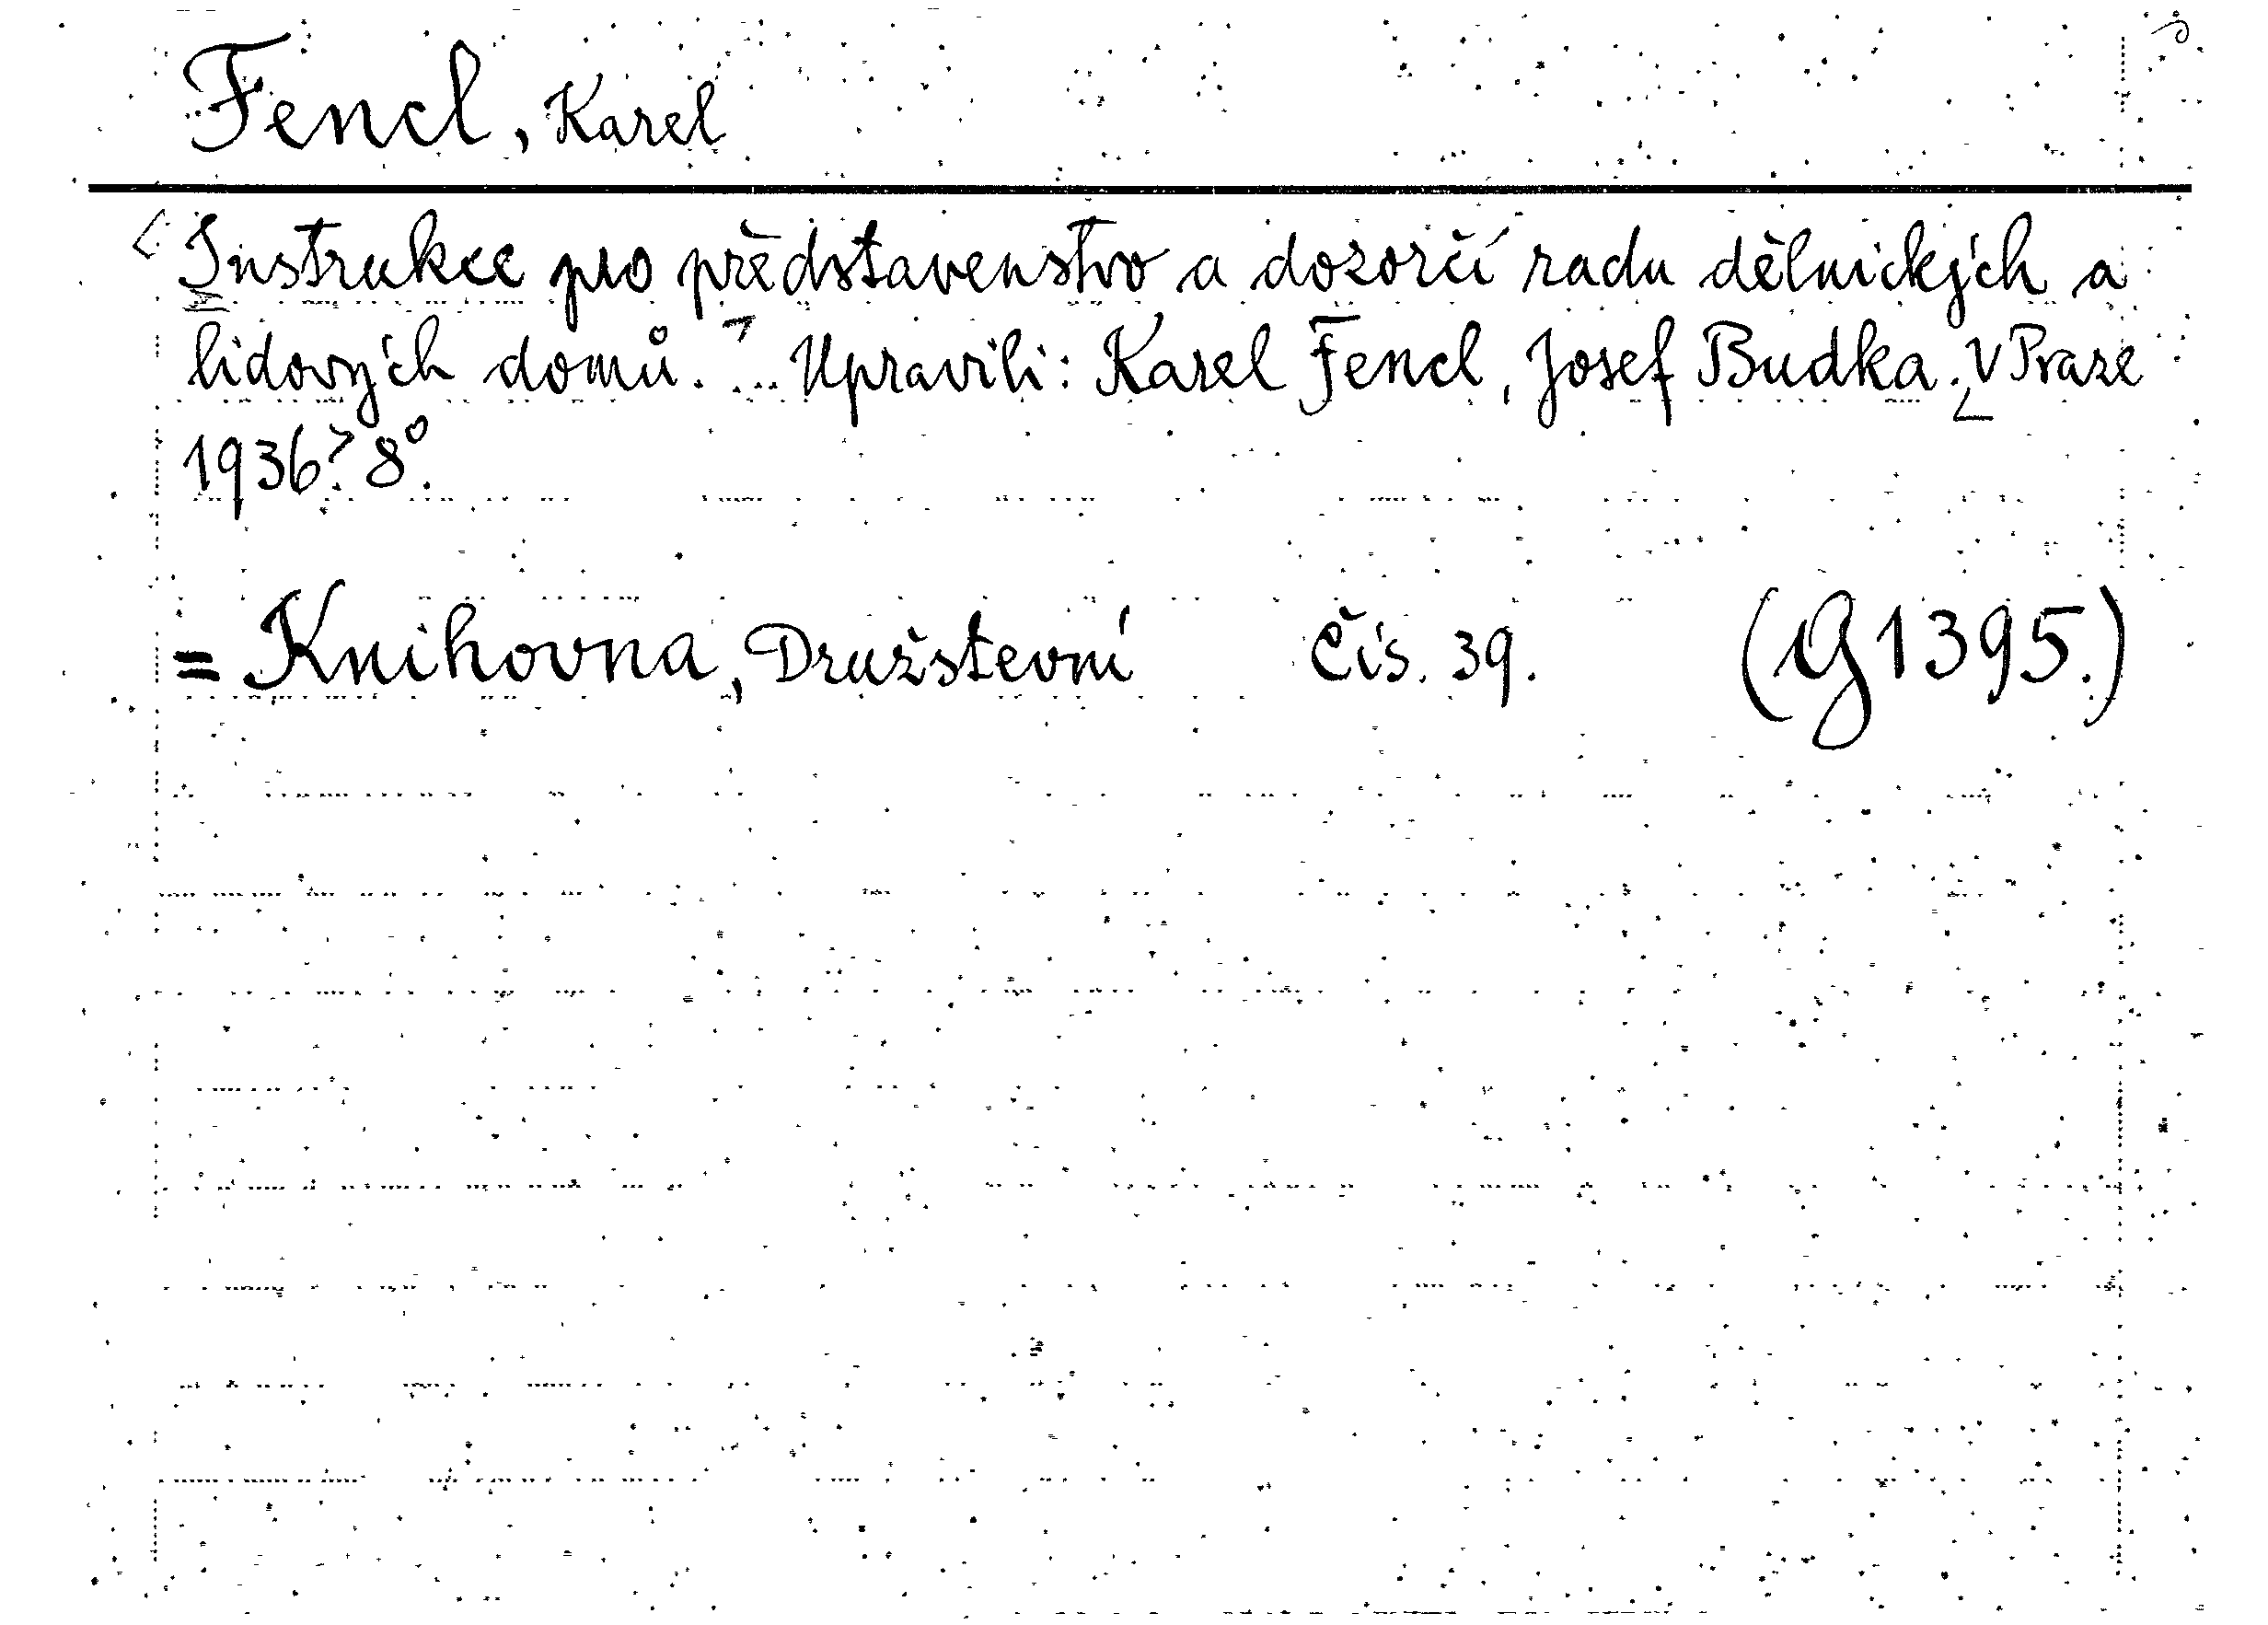 Fencl, Karel
Instrukce pro představenstvo a dozorčí radu dělnických a
lidových domů. ... Upravili: Karel Fencl, Josef Budka. V Praze
1936. 8°.
= Knihovna, Družstevní Čís. 39. (G 1395.)